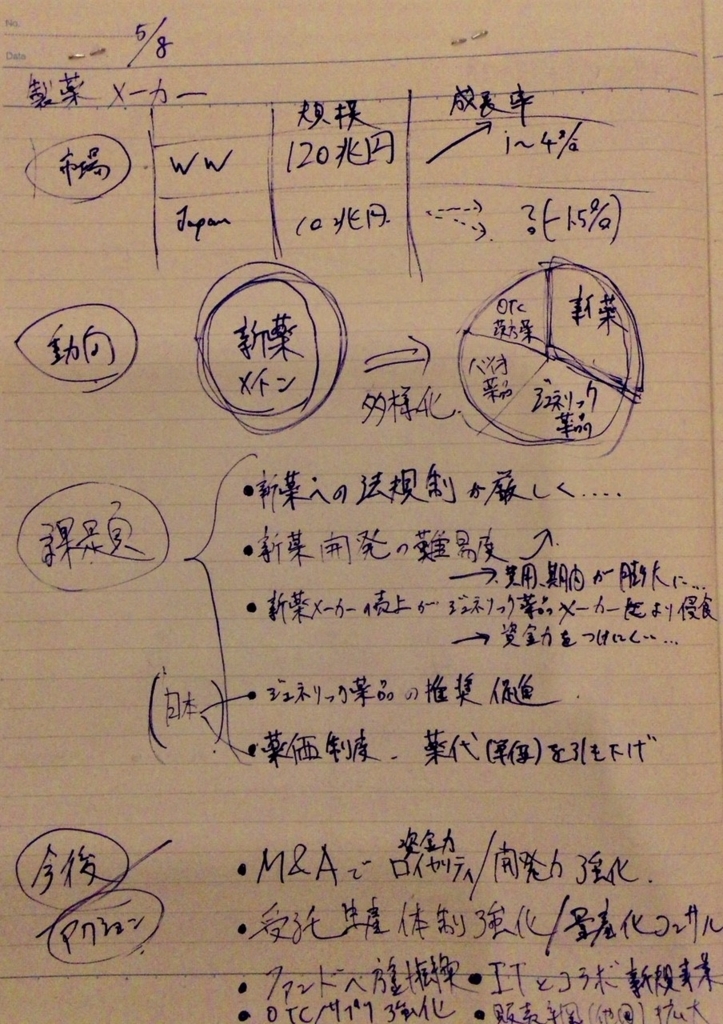 No.
Date 5/8
製薬メーカー
規模 成長率
市場 WW 120兆円 1~4%
Japan 10兆円 ?(-1.5%)
動向 新薬メイン 多様化 OTC 新薬 バイオ薬品 ジェネリック薬品
課題
・新薬への法規制が厳しく....
・新薬開発の難易度
→費用、期間が膨大に...
・新薬メーカーの売上がジェネリック薬品メーカーにより侵食
→資金力をつけにくく...
(日本)
・ジェネリック薬品の推奨 促進
・薬価制度. 薬代(単価)を引き下げ
今後アクション
・M&Aで 資金力 ロイヤリティ/開発力強化.
・受託生産体制強化/量産化コンサル
・ファンドへ ・ITとコラボ新規事業
・OTC/サプリ強化 ・販売 拡大